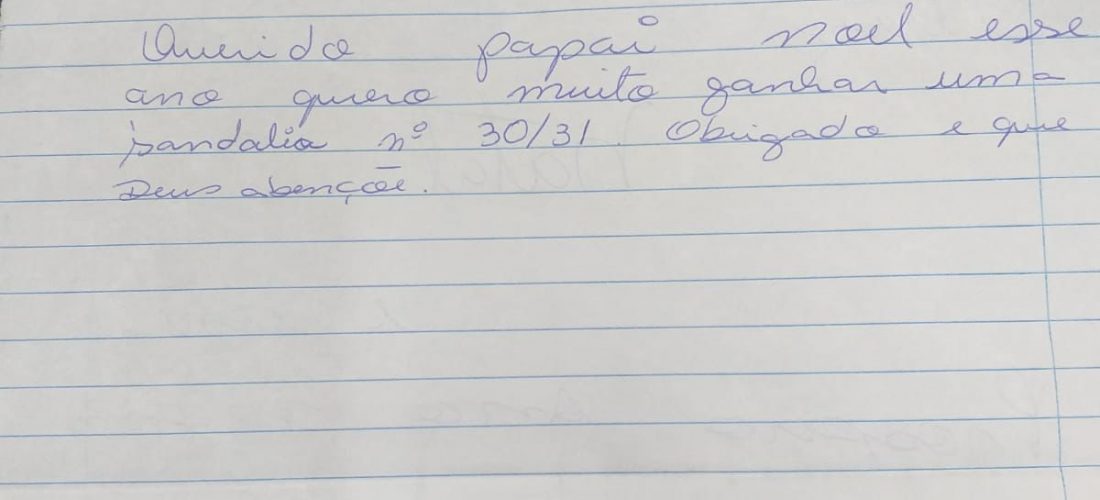 Querido papai noel esse
ano quero muito ganhar uma
sandalia nº 30/31. Obrigado e que
Deus abençõe.